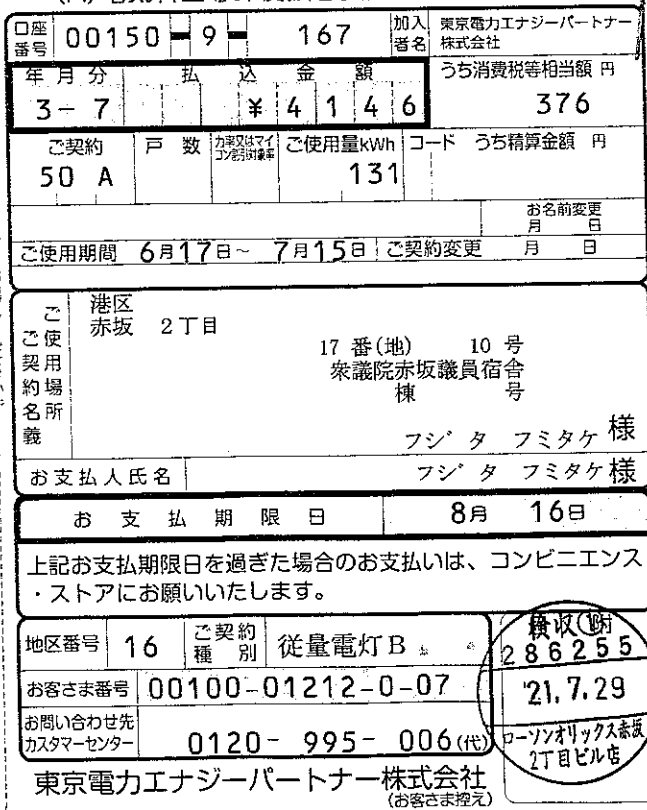 口座番号 00150-9-167 加入者名 東京電力エナジーパートナー株式会社
年月分 払込金額 うち消費税等相当額 円
3-7 ¥4146 376
ご契約 戸数 ご使用量kWh コード うち精算金額 円
50 A 131
お名前変更
月 日
ご使用期間 6月17日~ 7月15日 ご契約変更 月 日
ご使用場所
ご契約名義
港区
赤坂 2丁目
17 番(地) 10 号
衆議院赤坂議員宿舎
棟 号
フジタ フミタケ 様
お支払人氏名 フジタ フミタケ 様
お支払期限日 8月 16日
上記お支払期限日を過ぎた場合のお支払いは、コンビニエンス
・ストアにお願いいたします。
地区番号 16 ご契約種別 従量電灯B
お客さま番号 00100-01212-0-07
お問い合わせ先
カスタマーセンター 0120- 995- 006(代)
東京電力エナジーパートナー株式会社
(お客さま控え)
検収
286255
'21.7.29
ローソンオリックス赤坂
2丁目ビル店